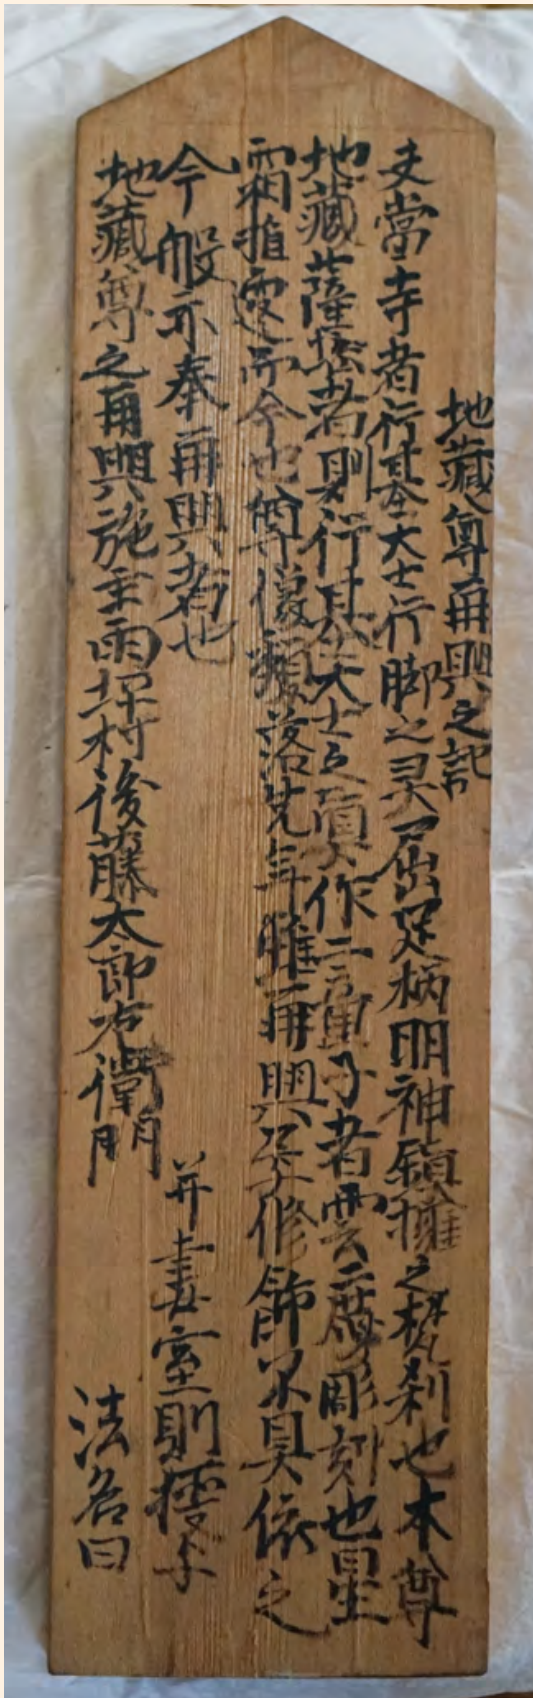 地藏尊再興之記
夫當寺者行基大士行脚之灵屈出足柄明神鎮擁之梵刹也本尊
地藏薩埵者則行基大士之真作二童子者雲慶彫刻也星
霜推遷而今也尊像頽落先年雖再興矣修飾不具依之
今般亦奉再興者也
地藏尊之再興施主雨坪村後藤太郎左衛門
并妻室則授与
法名曰